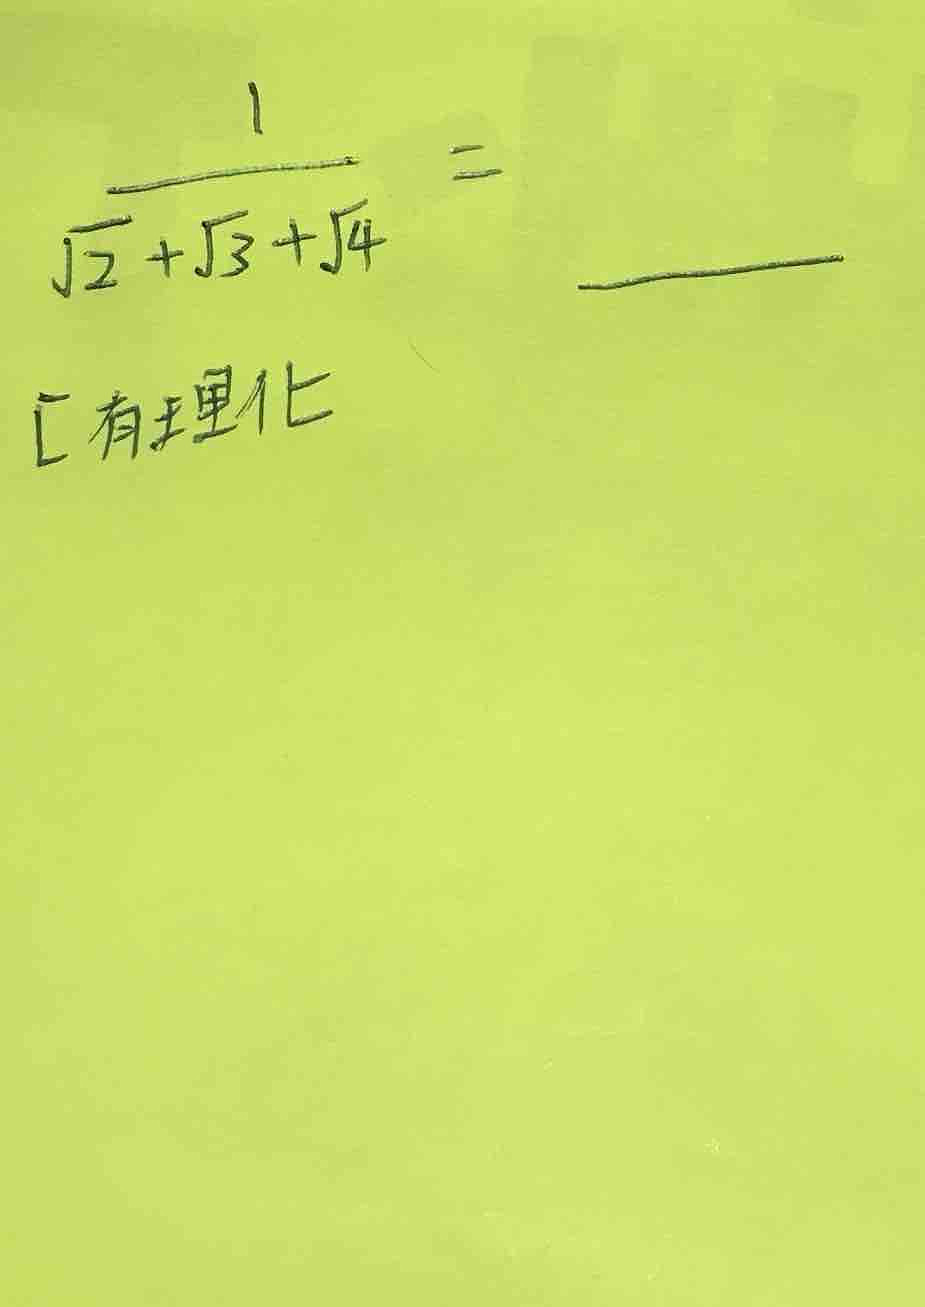 1
√2 + √3 + √4 =
[ 有理化